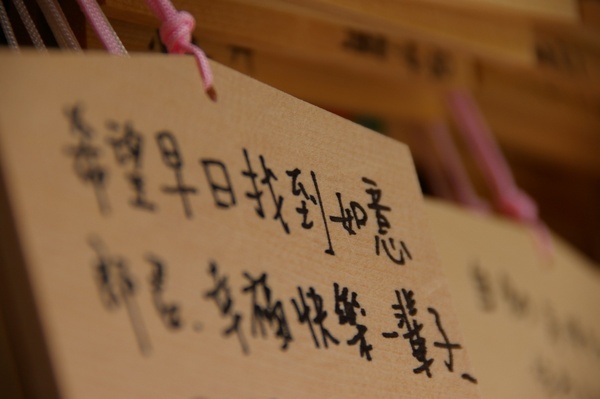 希望早日找到如意
郎君、幸福快樂一輩子、